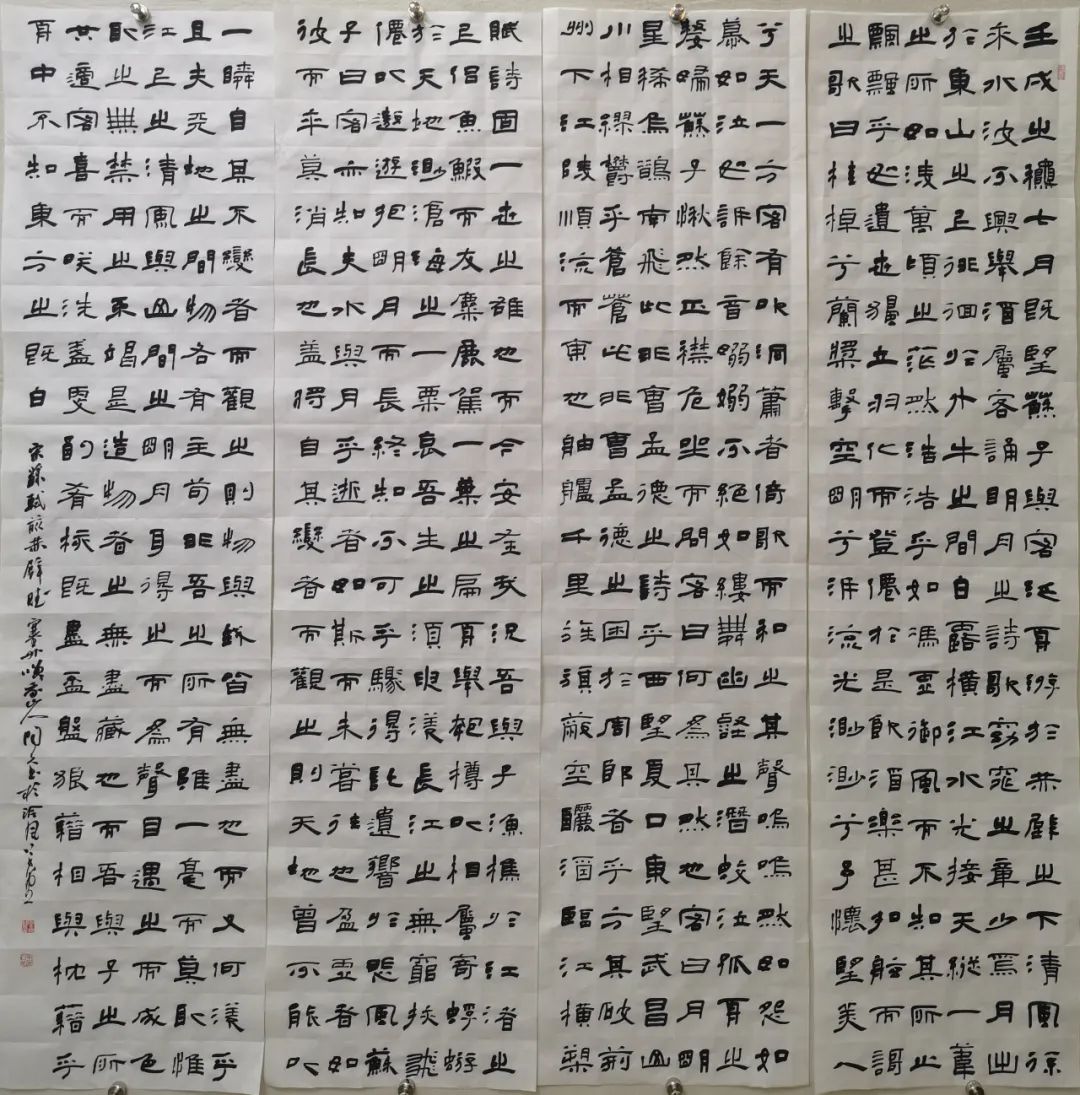 壬戌之龝七月既望蘇子與客泛舟游於赤壁之下清風徐
來水波不興舉酒屬客誦明月之詩歌窈窕之章少焉月出
於東山之上徘徊於斗牛之間白露橫江水光接天縱一葦
之所如凌萬頃之茫然浩浩乎如馮虛御風而不知其所止
飄飄乎如遺世獨立羽化而登僊於是飲酒樂甚扣舷而謌
之歌曰桂棹兮蘭槳擊空明兮泝流光渺渺兮予懷望美人
兮天一方客有吹洞簫者倚歌而和之其聲嗚嗚然如怨如
慕如泣如訴餘音嫋嫋不絕如縷舞幽壑之潛蛟泣孤舟之
嫠婦蘇子愀然正襟危坐而問客曰何為其然也客曰月明
星稀烏鵲南飛此非曹孟德之詩乎西望夏口東望武昌山
川相繆鬱乎蒼蒼此非曹孟德之困於周郎者乎方其破荊
州下江陵順流而東也舳艫千里旌旗蔽空釃酒臨江橫槊
賦詩固一世之雄也而今安在哉況吾與子漁樵於江渚之
上侶魚鰕而友麋鹿駕一葉之扁舟舉匏樽以相屬寄蜉蝣
於天地渺滄海之一粟哀吾生之須臾羨長江之無窮挾飛
僊以遨遊抱明月而長終知不可乎驟得託遺響於悲風蘇
子曰客亦知夫水與月乎逝者如斯而未嘗往也盈虛者如
彼而卒莫消長也蓋將自其變者而觀之則天地曾不能以
一瞬自其不變者而觀之則物與我皆無盡也而又何羨乎
且夫天地之間物各有主苟非吾之所有雖一毫而莫取惟
江上之清風與山間之明月耳得之而為聲目遇之而成色
取之無禁用之不竭是造物者之無盡藏也而吾與子之所
共適客喜而笑洗盞更酌肴核既盡盃盤狼藉相與枕藉乎
舟中不知東方之既白
宋蘇軾前赤壁賦